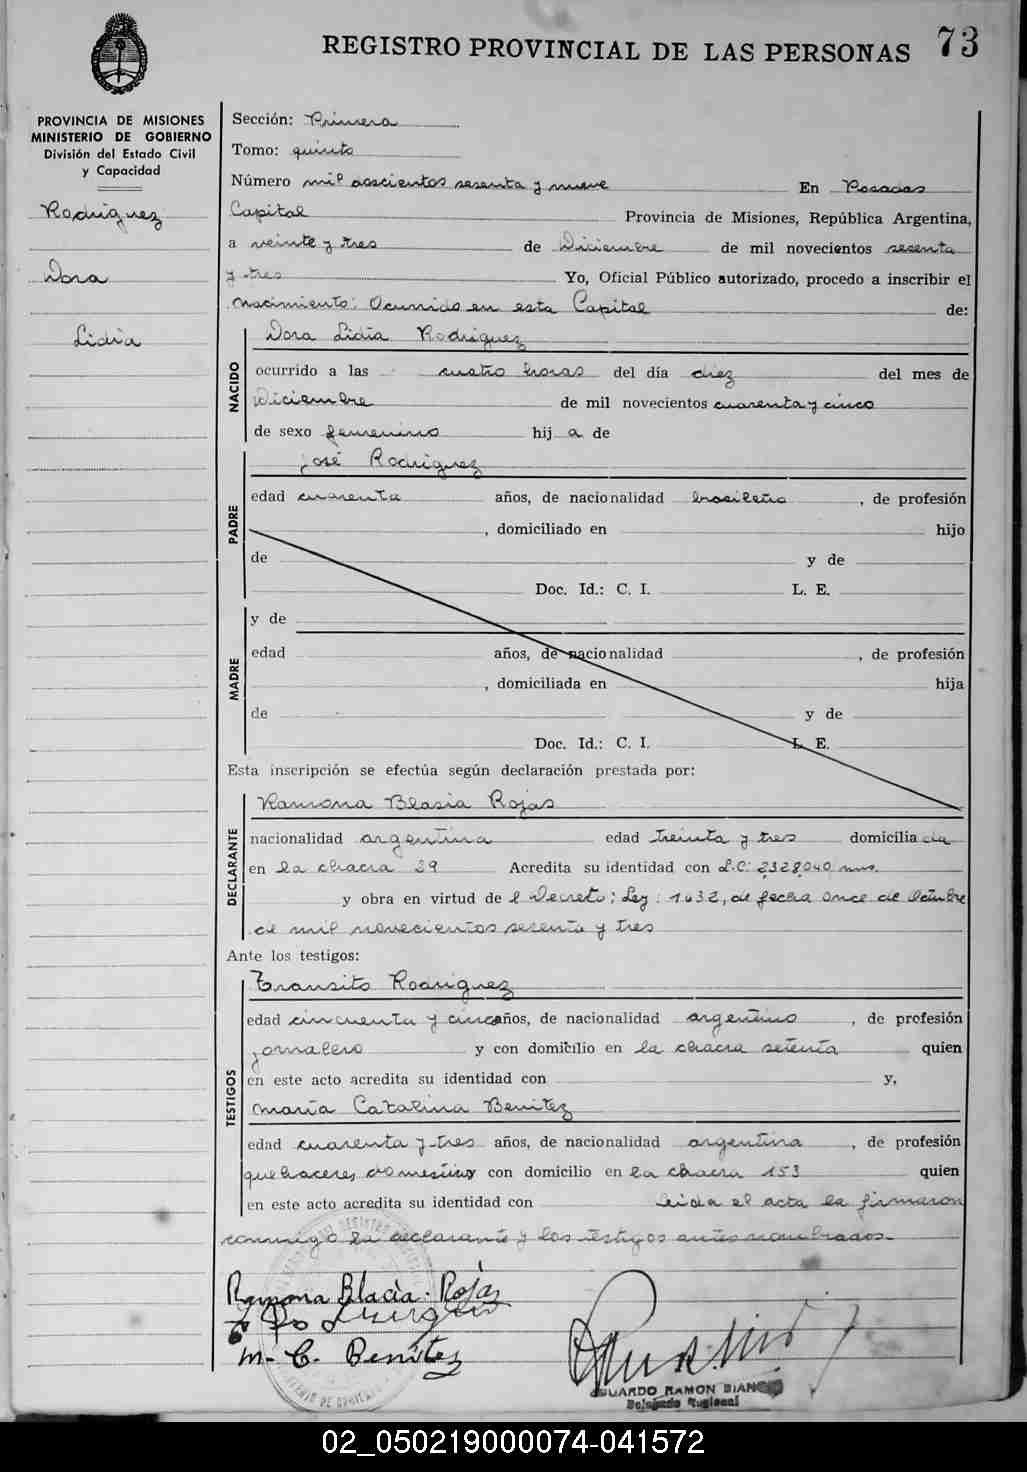 REGISTRO PROVINCIAL DE LAS PERSONAS 73
PROVINCIA DE MISIONES
MINISTERIO DE GOBIERNO
División del Estado Civil
y Capacidad
Rodriguez
Dora
Lidia
Sección: Primera
Tomo: quinto
Número mil doscientos sesenta y nueve En Posadas
Capital Provincia de Misiones, República Argentina,
a veinte y tres de Diciembre de mil novecientos sesenta
y tres Yo, Oficial Público autorizado, procedo a inscribir el
nacimiento: Ocurrido en esta Capital de:
NACIDO
Dora Lidia Rodriguez
ocurrido a las cuatro horas del día diez del mes de
Diciembre de mil novecientos cuarenta y cinco
de sexo femenino hij a de
PADRE
José Rodriguez
edad cuarenta años, de nacionalidad brasileño, de profesión
, domiciliado en hijo
de y de
Doc. Id.: C. I. L. E.
MADRE
y de
edad años, de nacionalidad , de profesión
, domiciliada en hija
de y de
Doc. Id.: C. I. L. E.
Esta inscripción se efectúa según declaración prestada por:
DECLARANTE
Ramona Blasia Rojas
nacionalidad argentina edad treinta y tres domicilia da
en la chacra 39 Acredita su identidad con L.C: 2,328,040
y obra en virtud de l Decreto; Ley: 1032, de fecha once de Octubre
de mil novecientos sesenta y tres
Ante los testigos:
TESTIGOS
Transito Rodriguez
edad cincuenta y cinco años, de nacionalidad argentino, de profesión
jornalero y con domicilio en la chacra setenta quien
en este acto acredita su identidad con y,
Maria Catalina Benitez
edad cuarenta y tres años, de nacionalidad argentina, de profesión
quehaceres domesticos con domicilio en la chacra 153 quien
en este acto acredita su identidad con leida el acta la firmaron
conmigo la declarante y los testigos antes nombrados.-
Ramona Blacia. Rojas
M. C. Benitez
EDUARDO RAMON BIANCO
Delegado Regional
02_050219000074-041572